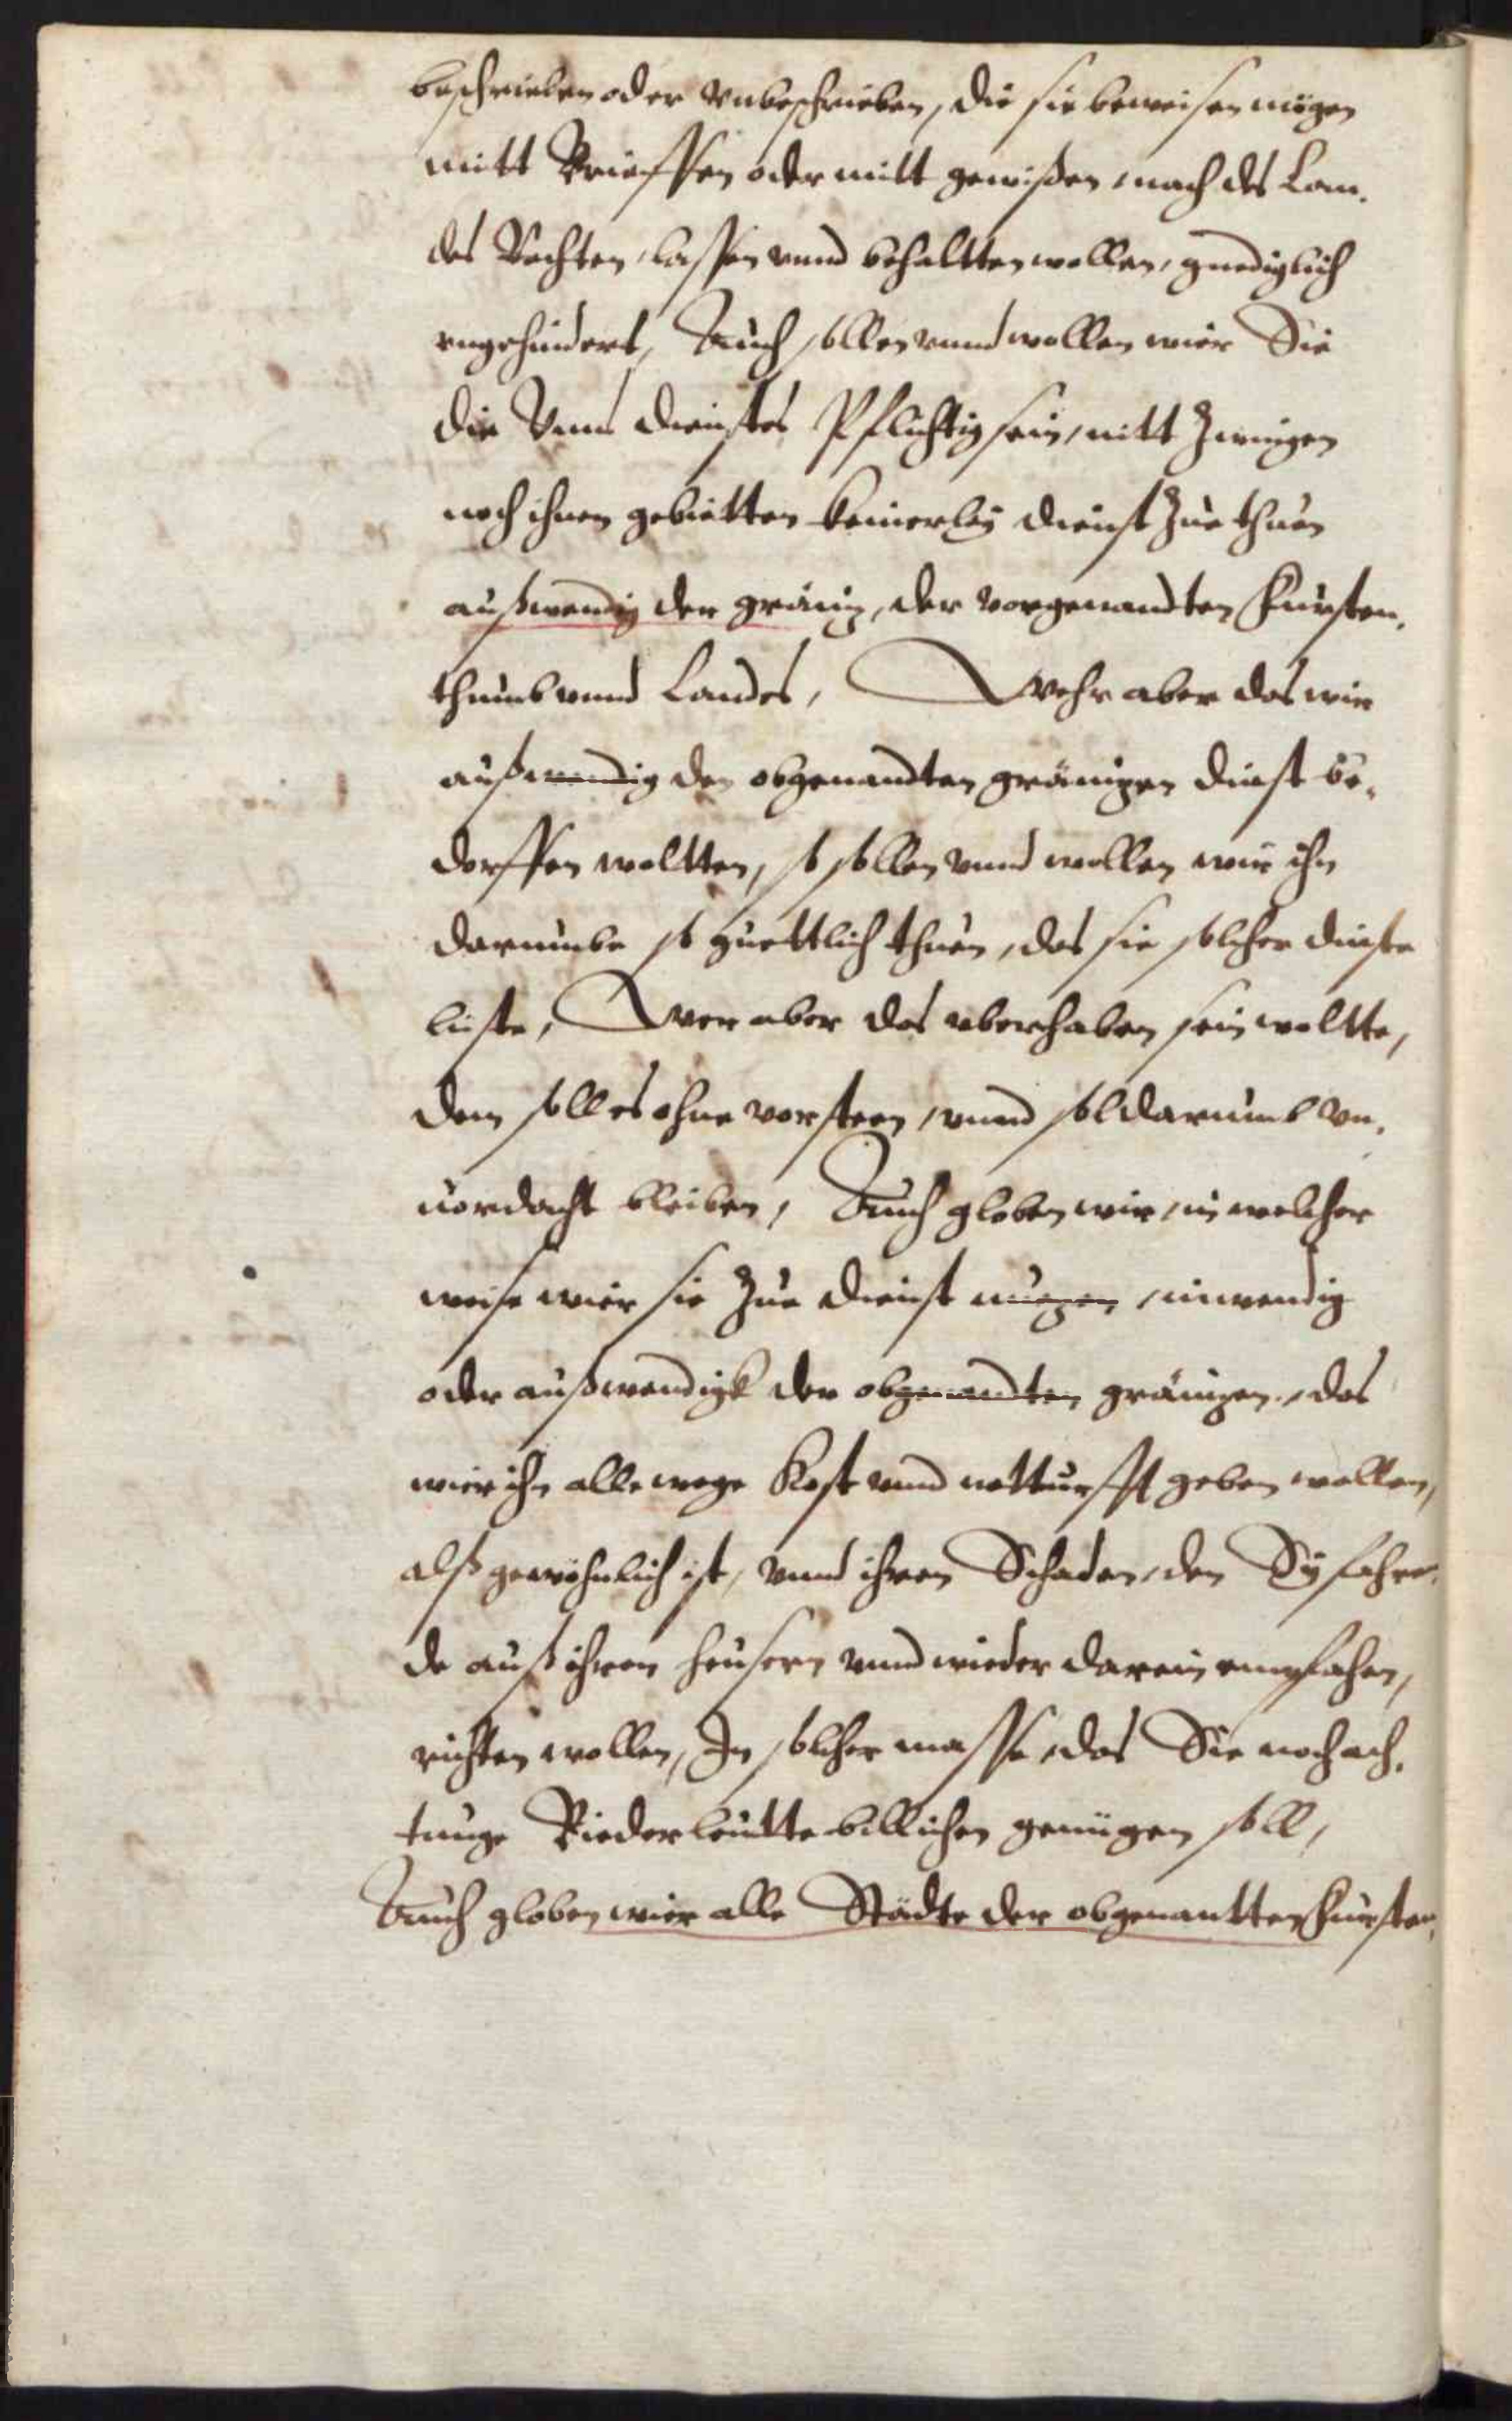 beschrieben oder vnbeschrieben, die sie beweisen mögen
mitt Brieffen oder mitt gewißen, nach des Lan.
des Rechten, lassen vnnd behaltten wollen, gnediglich
vngehindert, Auch sollen vnnd wollen wier Sie
die Vnns dienstes Pflichtig sein, nitt Zwingen
noch ihnen gebietten keinerley dienst Zue thuen
außwendig der gränitz, der vorgenandten Fursten.
thumb vnnd Landes, Wehr aber das wir
außwendig den obgenandten gränitzen dinst be,
dorffen woltten, so sollen vnnd wollen wir ihn
darumbe so guettlich thuen, das sie solcher dinste
liste, Wer aber das vberhaben sein woltte,
dem soll es ohne vorsteen, vnnd sol darumb vn,
uordacht bleiben, Auch globen wir, in welcher
weise wier sie Zue dienst nuzen, inwendig
oder außwendigk der obgenandten gränitzen, das
wier ihn alle wege Kost vnnd notturfft geben wollen,
alß gewöhnlich ist, vnnd ihren Schaden, den Sy fahre,
de auß ihren heusern vnnd wieder darein empfahen,
richten wollen, In solcher masse, das Sie noch ach,
tunge Biederleutte billichen genügen soll,
Auch globen wier alle Städte der obgenantten Fursten,